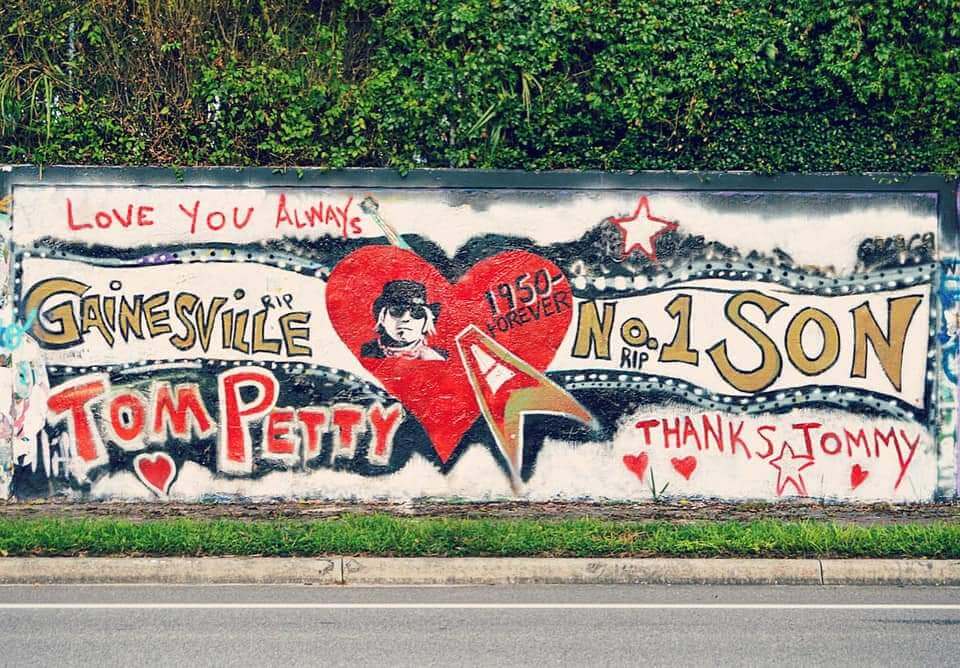 LOVE YOU ALWAYS
GAINESVILLE
RIP
1950-
FOREVER
No.1 SON
RIP
TOM PETTY
THANKS TOMMY